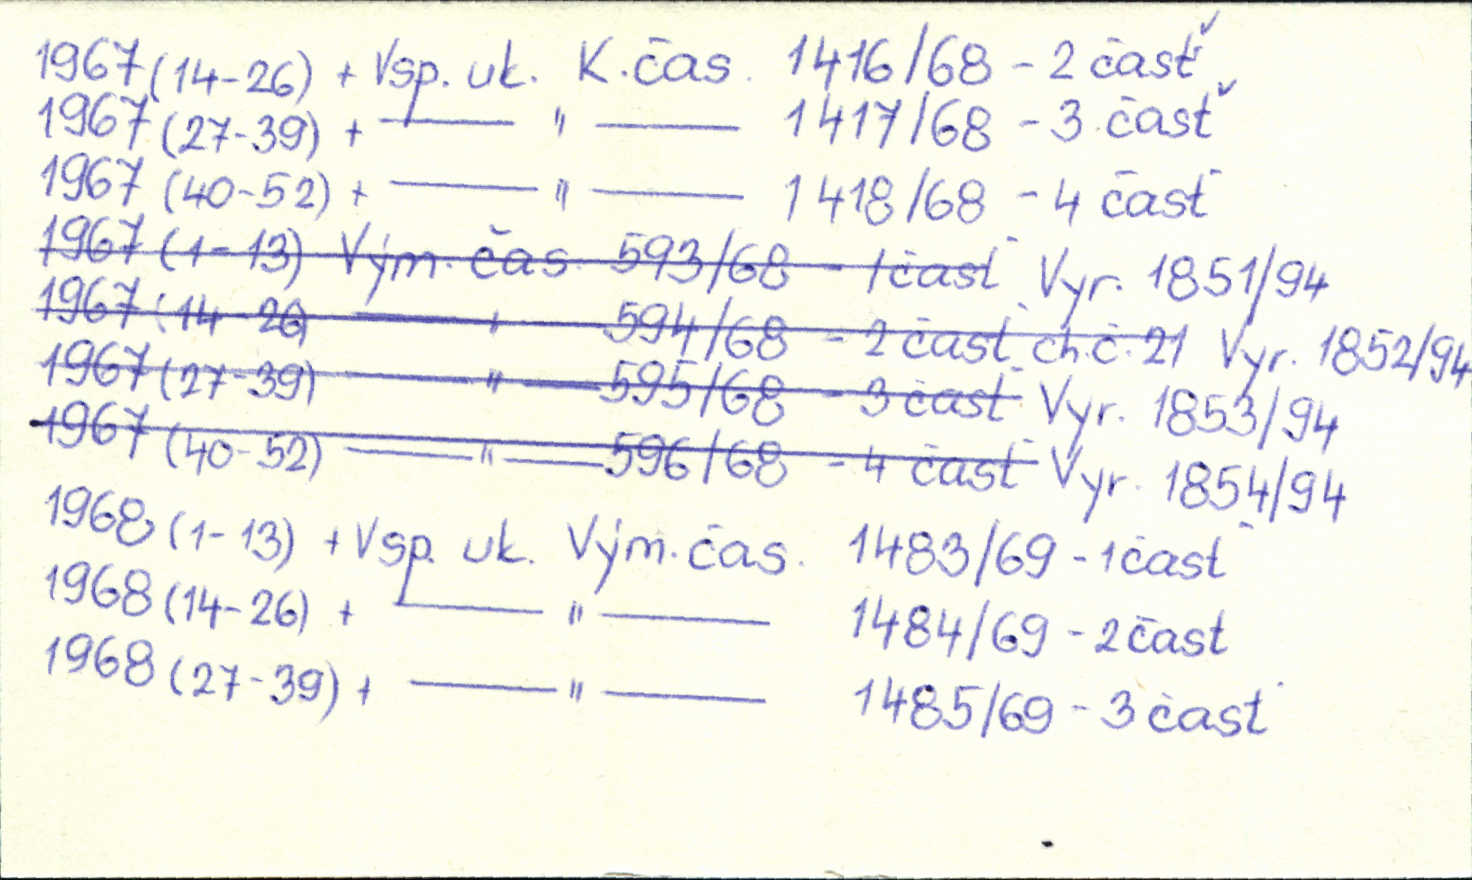 1967 (14-26) + Vsp. uk. K. čas. 1416/68 - 2 časť
1967 (27-39) + —— " —— 1417/68 - 3 časť
1967 (40-52) + —— " —— 1418/68 - 4 časť
1967 (1-13) Vým. čas. 593/68 - 1 časť Vyr. 1851/94
1967 (14-26) —— " —— 594/68 - 2 časť ch.č. 21 Vyr. 1852/94
1967 (27-39) —— " —— 595/68 - 3 časť Vyr. 1853/94
1967 (40-52) —— " —— 596/68 - 4 časť Vyr. 1854/94
1968 (1-13) + Vsp. uk. Vým. čas. 1483/69 - 1 časť
1968 (14-26) + —— " —— 1484/69 - 2 časť
1968 (27-39) + —— " —— 1485/69 - 3 časť